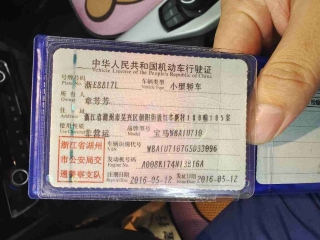 中华人民共和国机动车行驶证
Vehicle License of the People's Republic of China
号牌号码 Plate No. 浙E8817L 车辆类型 Vehicle Type 小型轿车
所有人 Owner 章芳芳
住址 浙江省湖州市吴兴区朝阳街道
使用性质 非营运 品牌型号 Model 宝马WBA1U710
浙江省湖州 车辆识别代号 VIN
市公安局交 发动机号码 Engine No.
通警察支队 注册日期 2016-05-12 发证日期 2016-05-12